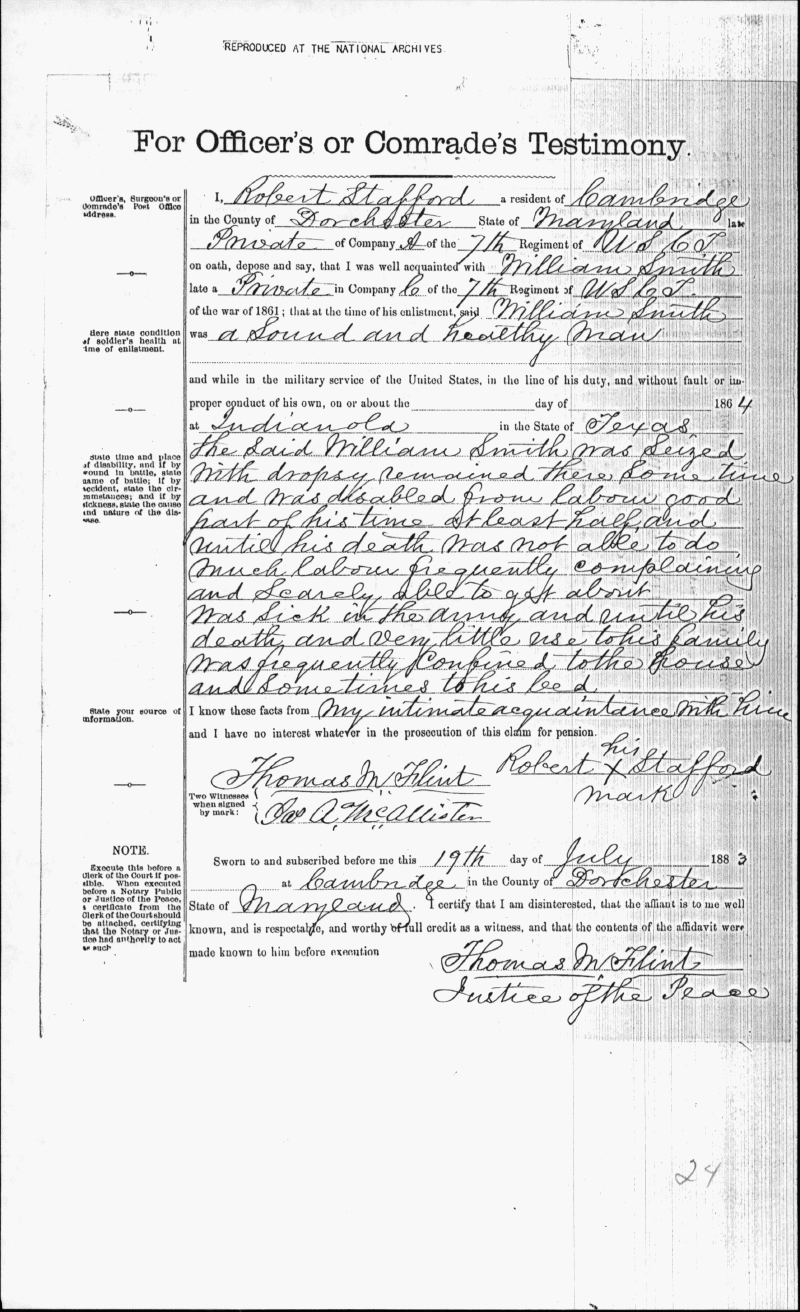 REPRODUCED AT THE NATIONAL ARCHIVES
For Officer's or Comrade's Testimony.
Officer's, Surgeon's or
Comrade's Post Office
address.
I, Robert Stafford a resident of Cambridge
in the County of Dorchester State of Maryland late
Private of Company A of the 7th Regiment of U S C T
on oath, depose and say, that I was well acquainted with William Smith
late a Private in Company C of the 7th Regiment of U S C T.
of the war of 1861; that at the time of his enlistment, said William Smith
Here state condition
of soldier's health at
time of enlistment.
was a Sound and healthy Man
and while in the military service of the United States, in the line of his duty, and without fault or im-
proper conduct of his own, on or about the day of 1864
at Indianola in the State of Texas
State time and place
of disability, and if by
wound in battle, state
name of battle; if by
accident, state the cir-
cumstances; and if by
sickness, state the cause
and nature of the dis-
ease.
the Said William Smith was Seized
With dropsy remained there Some time
and was disabled from labour good
part of his time at least half and
until his death was not able to do
Much labour frequently complaining
and Scarely able to get about
Was Sick in the army and until his
death and very little use to his family
Was frequently Confined to the house
and Sometimes to his bed
State your source of
information.
I know these facts from My intimate acquaintance With him
and I have no interest whatever in the prosecution of this claim for pension.
his
Robert X Stafford
mark
Two Witnesses
when signed
by mark:
Thomas M Flint
Jas A, McAllister
NOTE.
Execute this before a
Clerk of the Court if pos-
sible. When executed
before a Notary Public
or Justice of the Peace,
a certificate from the
Clerk of the Court should
be attached, certifying
that the Notary or Jus-
tice had authority to act
as such
Sworn to and subscribed before me this 19th day of July 1883
at Cambridge in the County of Dorchester
State of Maryland. I certify that I am disinterested, that the affiant is to me well
known, and is respectable, and worthy of full credit as a witness, and that the contents of the affidavit were
made known to him before execution
Thomas M Flint
Justice of the Peace
24